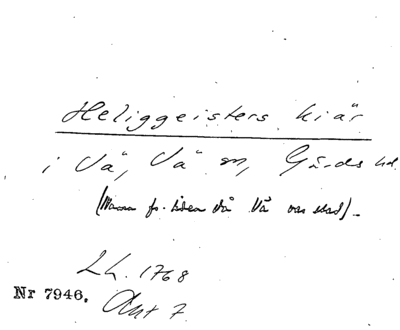 Heliggeisters kiär
i Vä, Vä sn, Gärds hd
(Namn fr. tiden då Vä var stad).
Lh. 1768
Nr 7946. Akt 7